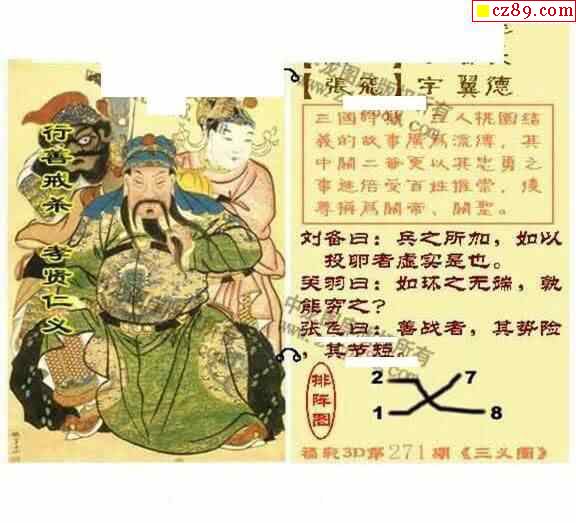 cz89.com
【張飛】字 翼德
行善戒杀 孝贤仁义
三國時期，三人桃園結
義的故事廣爲流傳，其
中關二爺更以其忠勇之
事迹倍受百姓推崇，後
尊稱爲關帝、關聖。
刘备曰：兵之所加，如以
投卵者虚实是也。
关羽曰：如环之无端，孰
能穷之？
张飞曰：善战者，其势险
，其节短。
排阵图
2 7
1 8
福彩3D第271期《三义图》